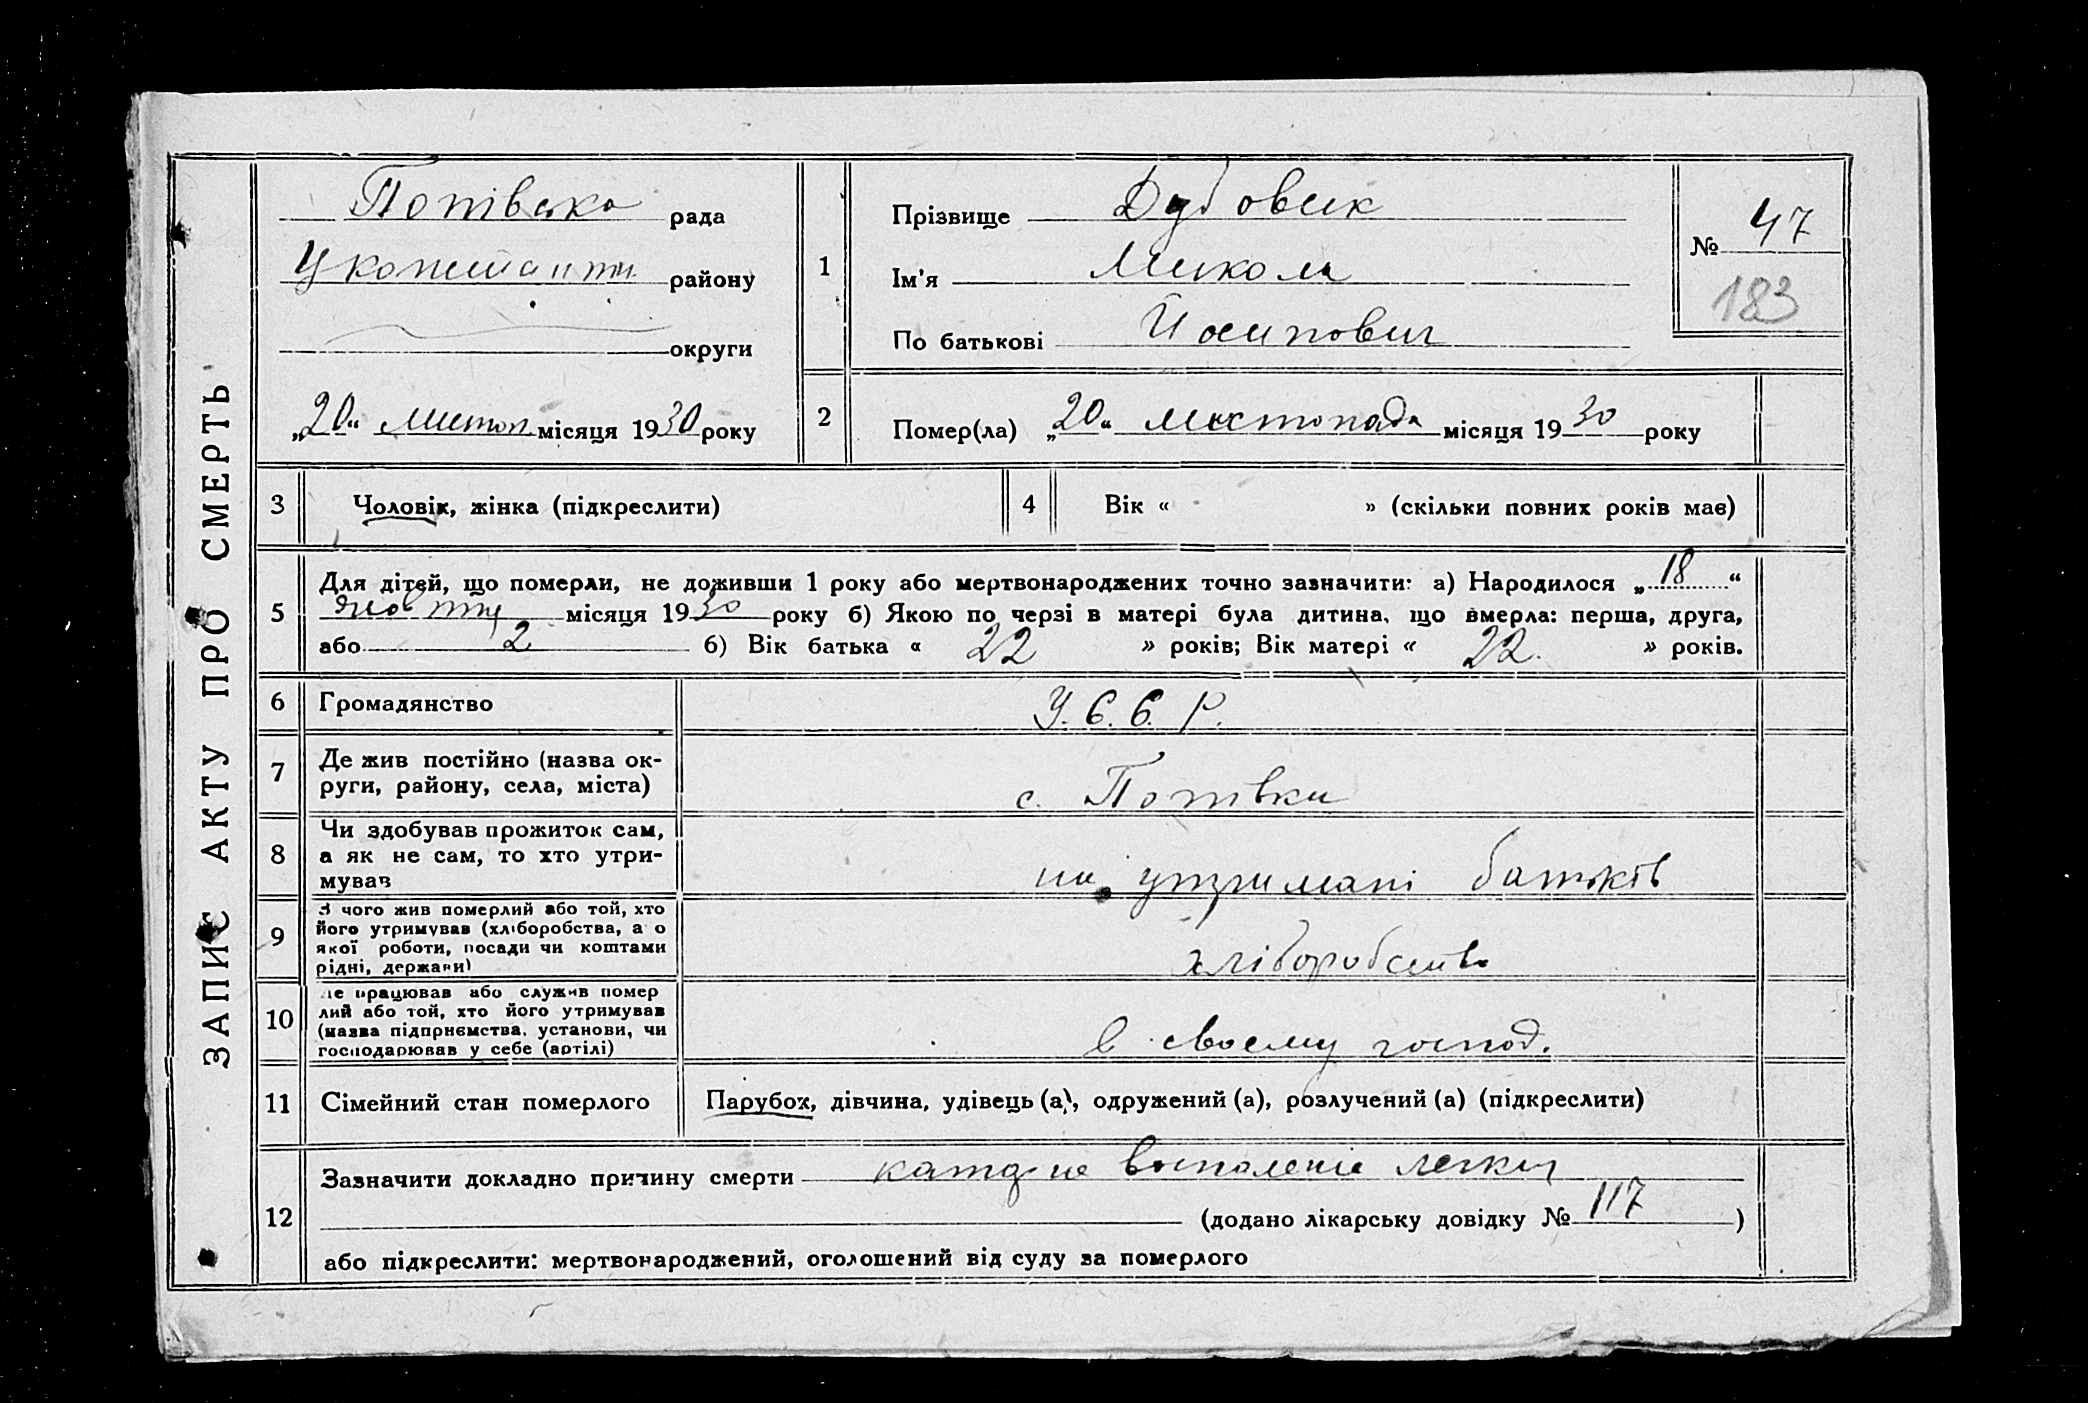 ЗАПИС АКТУ ПРО СМЕРТЬ
Потівська рада
району
округи
„20“ листоп місяця 1930 року
1
Прізвище Дубовик
Ім'я Микола
По батькові Йосипович
№ 47
183
2
Помер(ла) „20“ листопада місяця 1930 року
3
Чоловік, жінка (підкреслити)
4
Вік « » (скільки повних років має)
5
Для дітей, що померли, не доживши 1 року або мертвонароджених точно зазначити: а) Народилося „18“
жовтня місяця 1930 року б) Якою по черзі в матері була дитина, що вмерла: перша, друга,
або 2 б) Вік батька « 22 » років; Вік матері « 22. » років.
6
Громадянство
У.С.С.Р.
7
Де жив постійно (назва ок-
руги, району, села, міста)
с. Потівка
8
Чи здобував прожиток сам,
а як не сам, то хто утри-
мував
на утримані батьків
9
З чого жив померлий або той, хто
його утримував (хліборобства, а о
якої роботи, посади чи коштами
рідні, держави)
хліборобств
10
Де працював або служив помер
лий або той, хто його утримував
(назва підприємства, установи, чи
господарював у себе (артілі)
в своєму господ.
11
Сімейний стан померлого
Парубок, дівчина, удівець (а), одружений (а), розлучений (а) (підкреслити)
12
Зазначити докладно причину смерти воспаленіе легких
(додано лікарську довідку № 117)
або підкреслити: мертвонароджений, оголошений від суду за померлого